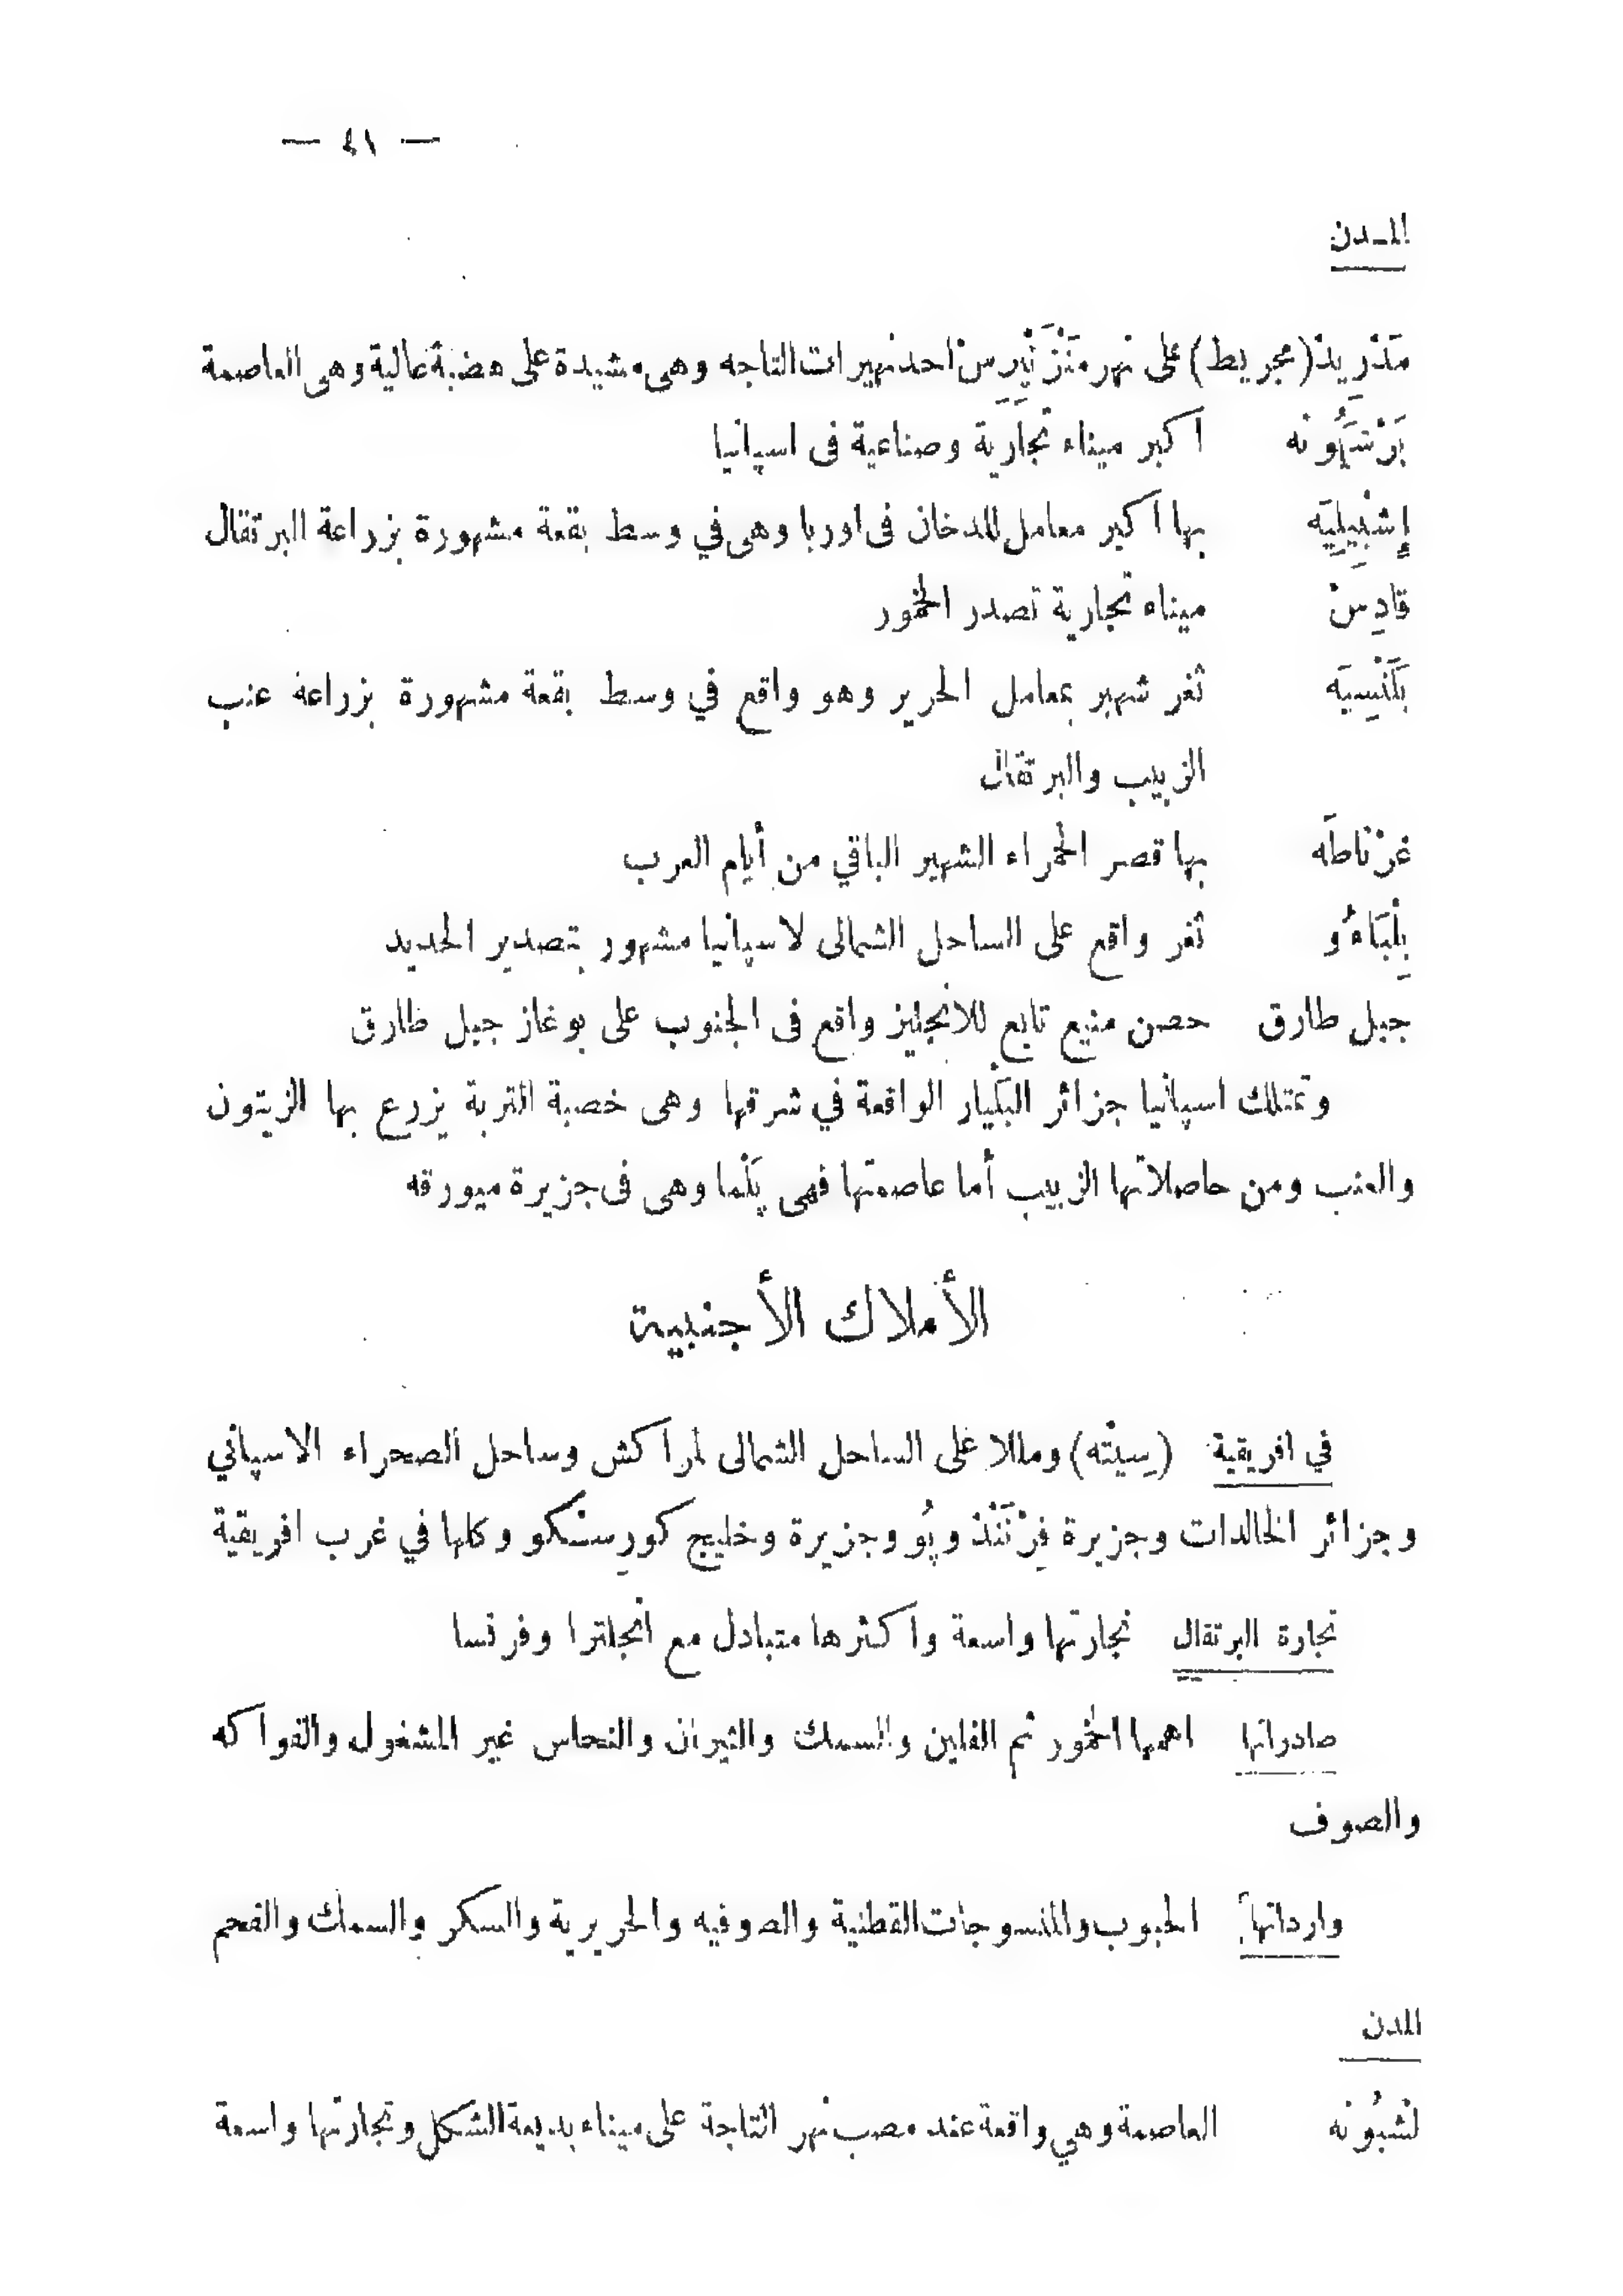 — ٤١ —
المدن
مَدْرِيدْ (مجريط) على نهر مَنْزَنَيْرِسْ احد نهيرات التاجه وهى مشيدة على هضبة عالية وهى العاصمة
بَرْشَلُونه اكبر ميناء تجارية وصناعية فى اسپانيا
إِشْبِيلِيَه بها اكبر معامل للدخان فى اوربا وهى في وسط بقعة مشهورة بزراعة البرتقال
قادِسْ ميناء تجارية تصدر الخمور
بَلَنْسِيَه ثغر شهير بمعامل الحرير وهو واقع في وسط بقعة مشهورة بزراعة عنب
الزبيب والبرتقال
غَرْناطَه بها قصر الحمراء الشهير الباقي من أيام العرب
بِلْبَاءُو ثغر واقع على الساحل الشمالى لاسپانيا مشهور بتصدير الحديد
جبل طارق حصن منيع تابع للانجليز واقع فى الجنوب على بوغاز جبل طارق
وتمتلك اسپانيا جزائر البَليار الواقعة في شرقها وهى خصبة التربة يزرع بها الزيتون
والعنب ومن حاصلاتها الزبيب أما عاصمتها فهى پَلْما وهى فى جزيرة ميورقه
الأملاك الأجنبية
في افريقية (سِيتْه) ومللا على الساحل الشمالى لمراكش وساحل الصحراء الاسپاني
وجزائر الخالدات وجزيرة فِرْنَنْدْ وپُو وجزيرة وخليج كورِسكو وكلها في غرب افريقية
تجارة البرتقال تجارتها واسعة واكثرها متبادل مع انجلترا وفرنسا
صادراتها اهمها الخمور ثم الفلين والسمك والثيران والنحاس غير المشغول والفواكه
والصوف
وارداتها الحبوب والمنسوجات القطنية والصوفيه والحريرية والسكر والسمك والفحم
المدن
لشبُونه العاصمة وهي واقعة عند مصب نهر التاجة على ميناء بديعة الشكل وتجارتها واسعة